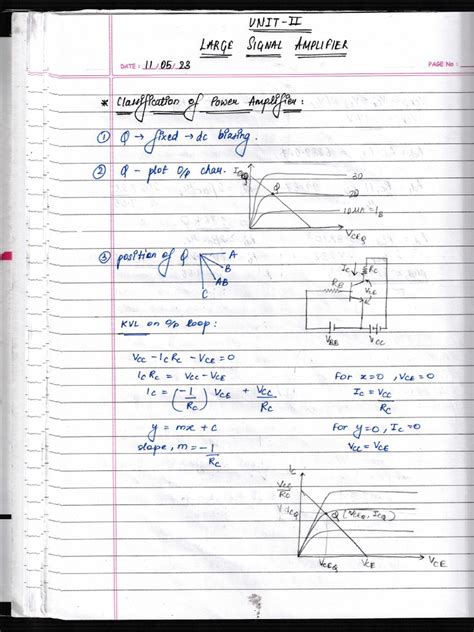 UNIT-II
LARGE SIGNAL AMPLIFIER
DATE: 11/05/23
PAGE No:
* Classification of Power Amplifier:
① Q → fixed → dc biasing.
② Q - plot o/p char.
30
20
10μA = IB
Q
VCEQ
③ position of Q
A
B
AB
C
IC
RC
RB
VCE
VBE
VCC
KVL on o/p loop:
VCC - ICRC - VCE = 0
ICRC = VCC - VCE
For x=0, VCE=0
IC = (-1/RC) VCE + VCC/RC
IC = VCC/RC
y = mx + c
For y=0, IC=0
slope, m = -1/RC
VCC = VCE
IC
VCC/RC
Q (VCEQ, ICQ)
VCEQ
VCE
VCE